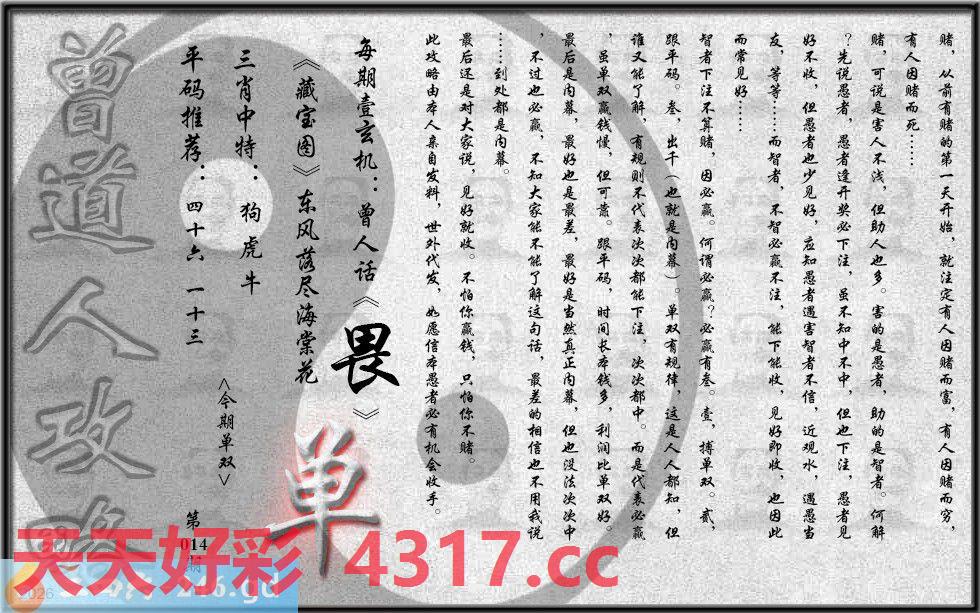 赌，从前有赌的第一天开始，就注定有人因赌而富，有人因赌而穷，
有人因赌而死……
赌，可说是害人不浅，但助人也多。害的是愚者，助的是智者。何解
？先说愚者，愚者逢开奖必下注，虽不知中不中，但也下注，愚者见
好不收，但愚者也少见好，应知愚者遇害智者不信，近观水，遇愚当
友，等等……而智者，不智必赢不注，能下能收，见好即收，也因此
而常见好……
智者下注不算赌，因必赢。何谓必赢？必赢有叁。壹，搏单双。贰，
跟平码。叁，出千（也就是内幕）。单双有规律，这是人人都知，但
谁又能了解，有规则不代表次次都能下注，次次都中。而是代表必赢
，虽单双赢钱慢，但可靠。跟平码，时间长本钱多，利润比单双好。
最后是内幕，最好也是最差，最好是当然真正内幕，但也没法次次中
，不过也必赢，不知大家能不能了解这句话，最差的相信也不用我说
……到处都是内幕。
最后还是对大家说，见好就收。不怕你赢钱，只怕你不赌。
此攻略由本人亲自发料，世外代发，如愿信本愚者必有机会收手。
每期壹玄机：曾人话《畏》
《藏宝图》东风落尽海棠花
单
三肖中特：狗虎牛
<今期单双>
平码推荐：四十六 一十三
第
014
期
曾道人攻略
天天好彩 4317.cc
2026